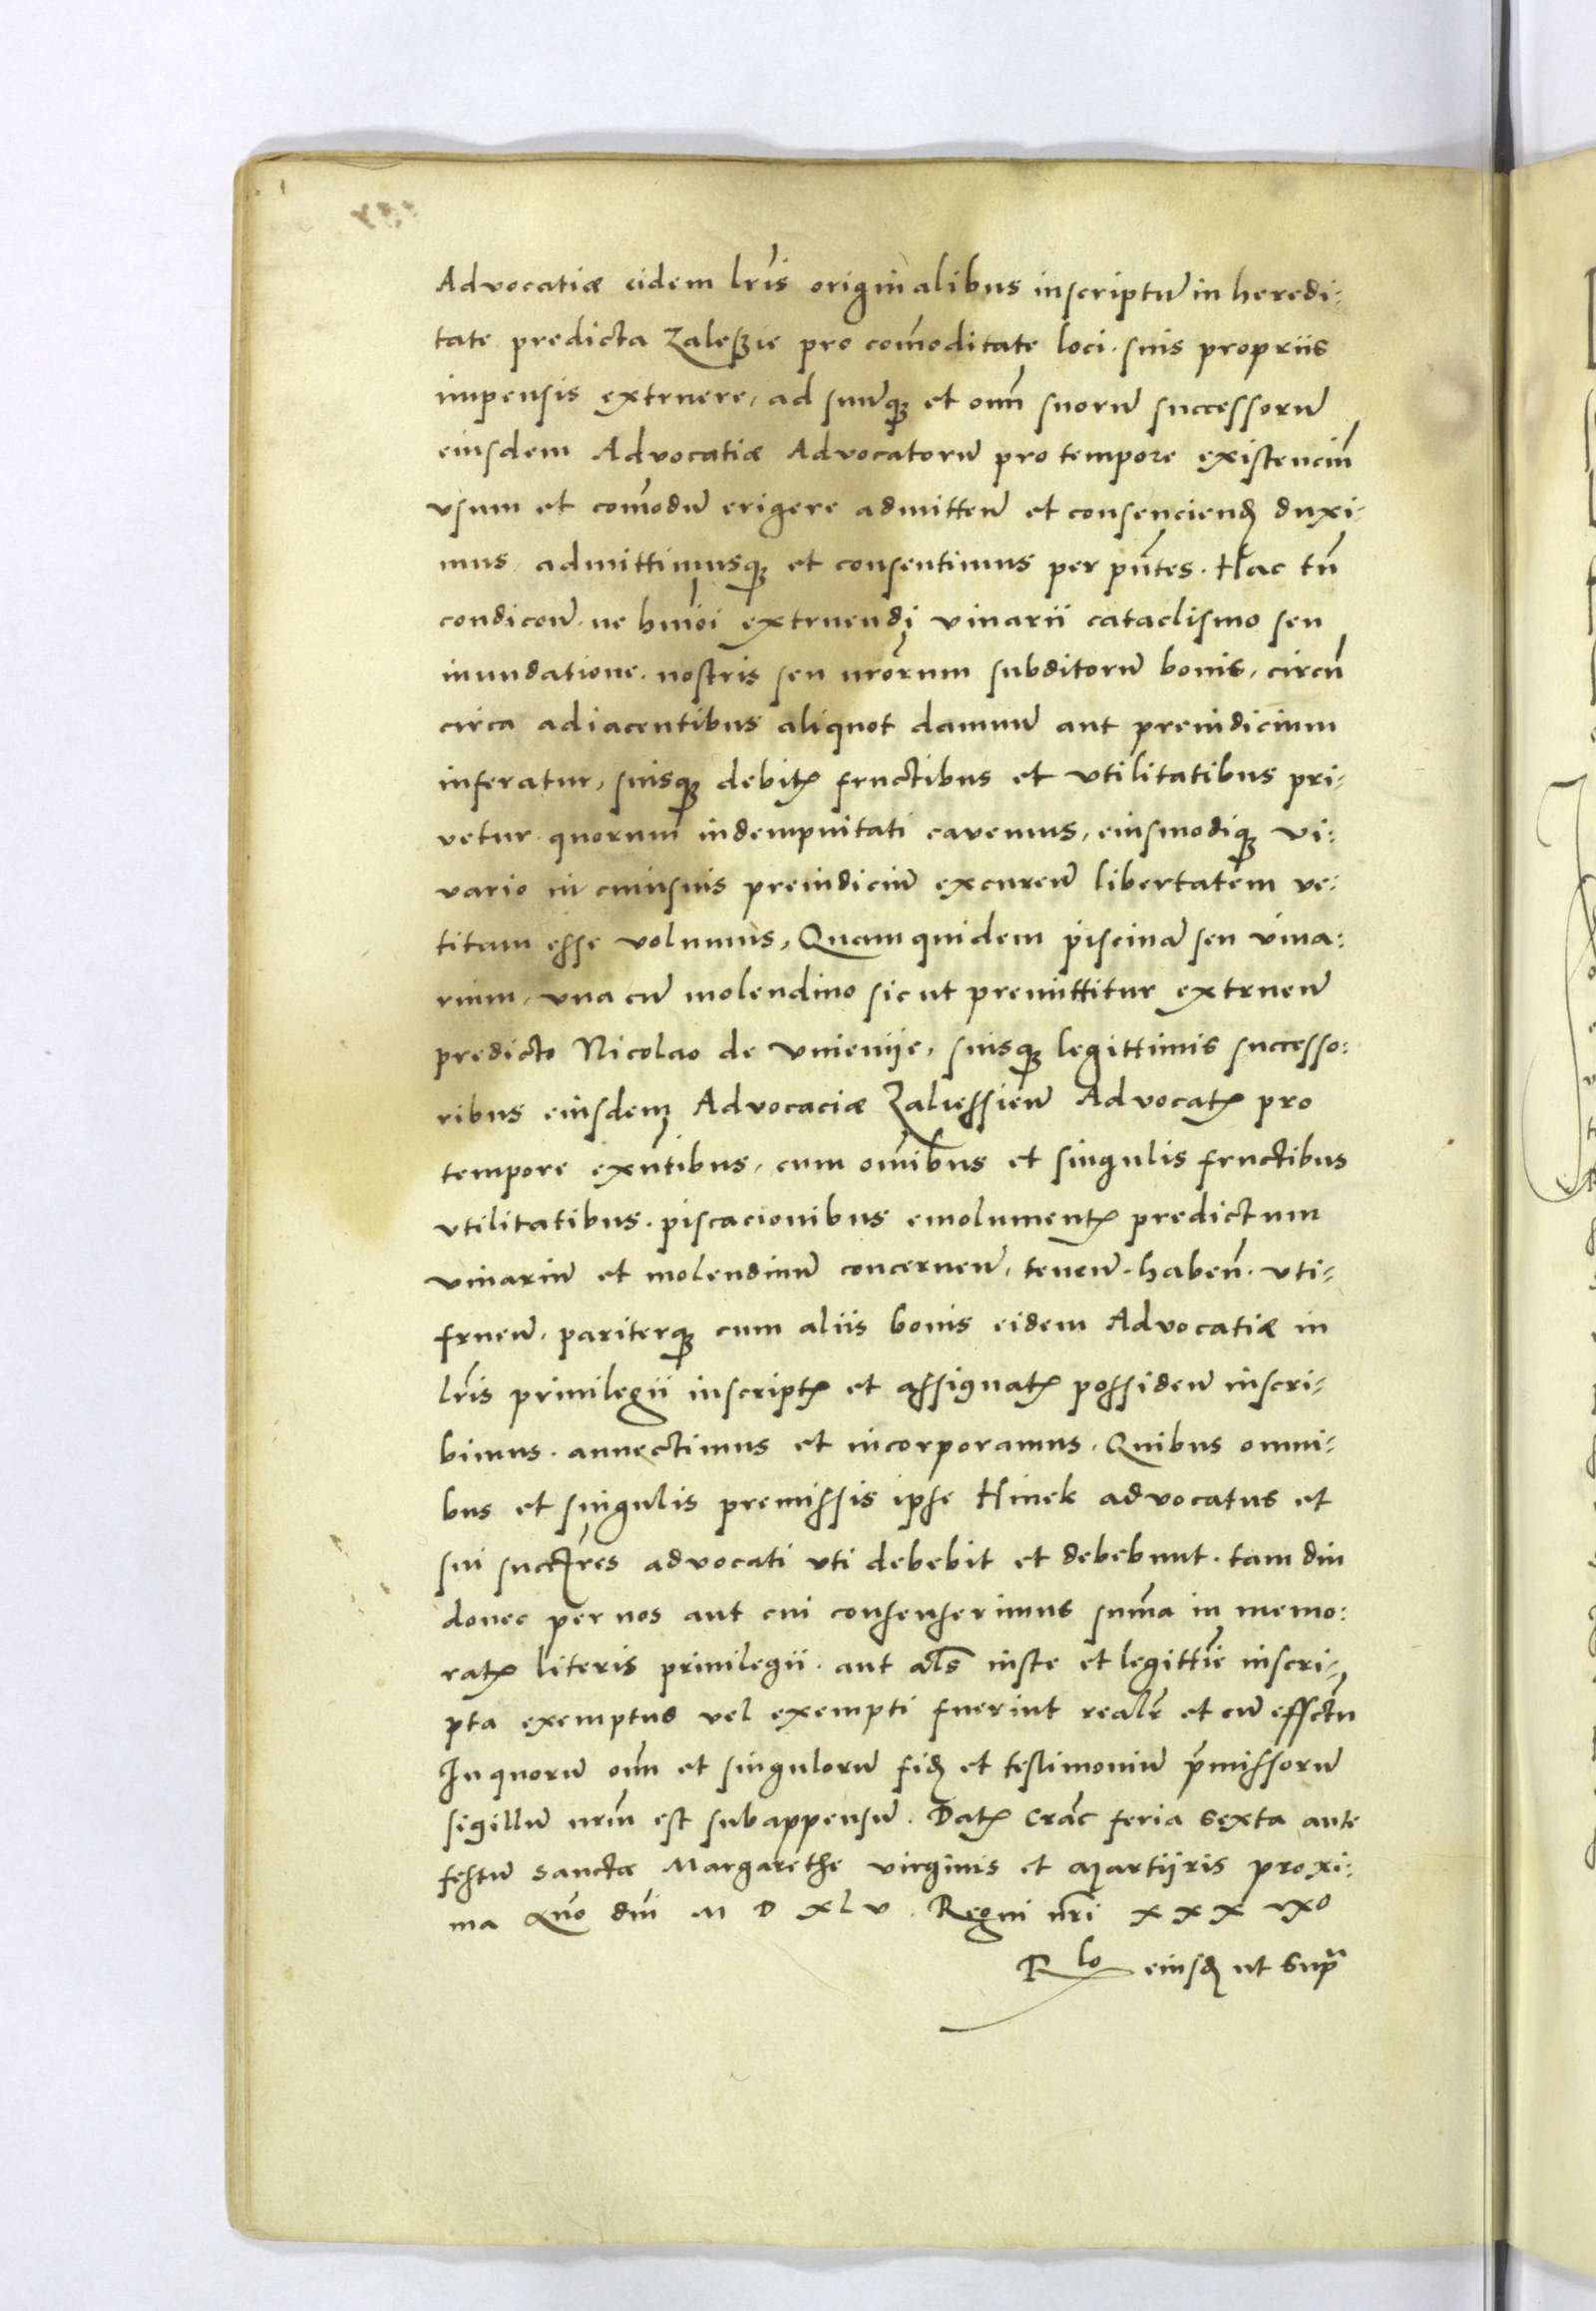 Advocatiæ eidem lr̃is originalibus inscriptũ in heredi-
tate predicta Zaleßie pro com̃oditate loci . suis propriis
impensis extruere, ad suũq₃ et om̃ suorũ successorũ
eiusdem Advocatiæ Advocatorũ pro tempore existenciũ
vsum et com̃odũ erigere admitteñ et consenciend̃ duxi-
mus, admittimusq₃ et consentimus per pñtes . Hac tñ
condicoẽ . ne hm̃oi extruendi vivarii cataclismo seu
inundatione . nostris seu nr̃orum subditorũ bonis, circũ
circa adiacentibus aliquot damnũ aut preiudicium
inferatur, suisq₃ debitꝭ fructibus et vtilitatibus pri-
vetur . quorum indempnitati cavemus, eiusmodiq₃ vi:
vario in cuiusuis preiudiciũ excureñ libertatem ve:
titam esse volumus, Quam quidem piscinã seu viva:
rium, vna cũ molendino sic ut premittitur extrueñ
predicto Nicolao de Vnievije, suisq₃ legittimis successo:
ribus eiusdem Advocaciæ Zaliessieñ Advocatꝭ pro
tempore exñtibus, cum om̃ibus et singulis fructibus
vtilitatibus . piscacionibus emolumentꝭ predictum
vivariũ et molendinũ concerneñ, teneñ . habeñ . vti-
frueñ . pariterq₃ cum aliis bonis eidem Advocatiæ in
lr̃is privilegii inscriptꝭ et assignatꝭ possideñ inscri-
bimus . annectimus et incorporamus . Quibus omni-
bus et singulis premissis ipse Hinek advocatus et
sui succr̃es advocati vti debebit et debebunt . tam diu
donec per nos aut cui consenserimus sum̃a in memo:
ratꝭ literis privilegii . aut al̃s iuste et legittiẽ inscri-
pta exemptus vel exempti fuerint realr̃ et cũ effctu
In quorũ om̃ et singulorũ fid̃ et testimoniũ p̃missorũ
sigillũ nr̃m est subappensũ . Datꝭ Crac̃ feria sexta ante
festũ Sanctæ Margarethe virginis et Martijris proxi:
ma Año dñi M D XLV . Regni nr̃i XXX IXo
R lo eiusd̃ ut Supra